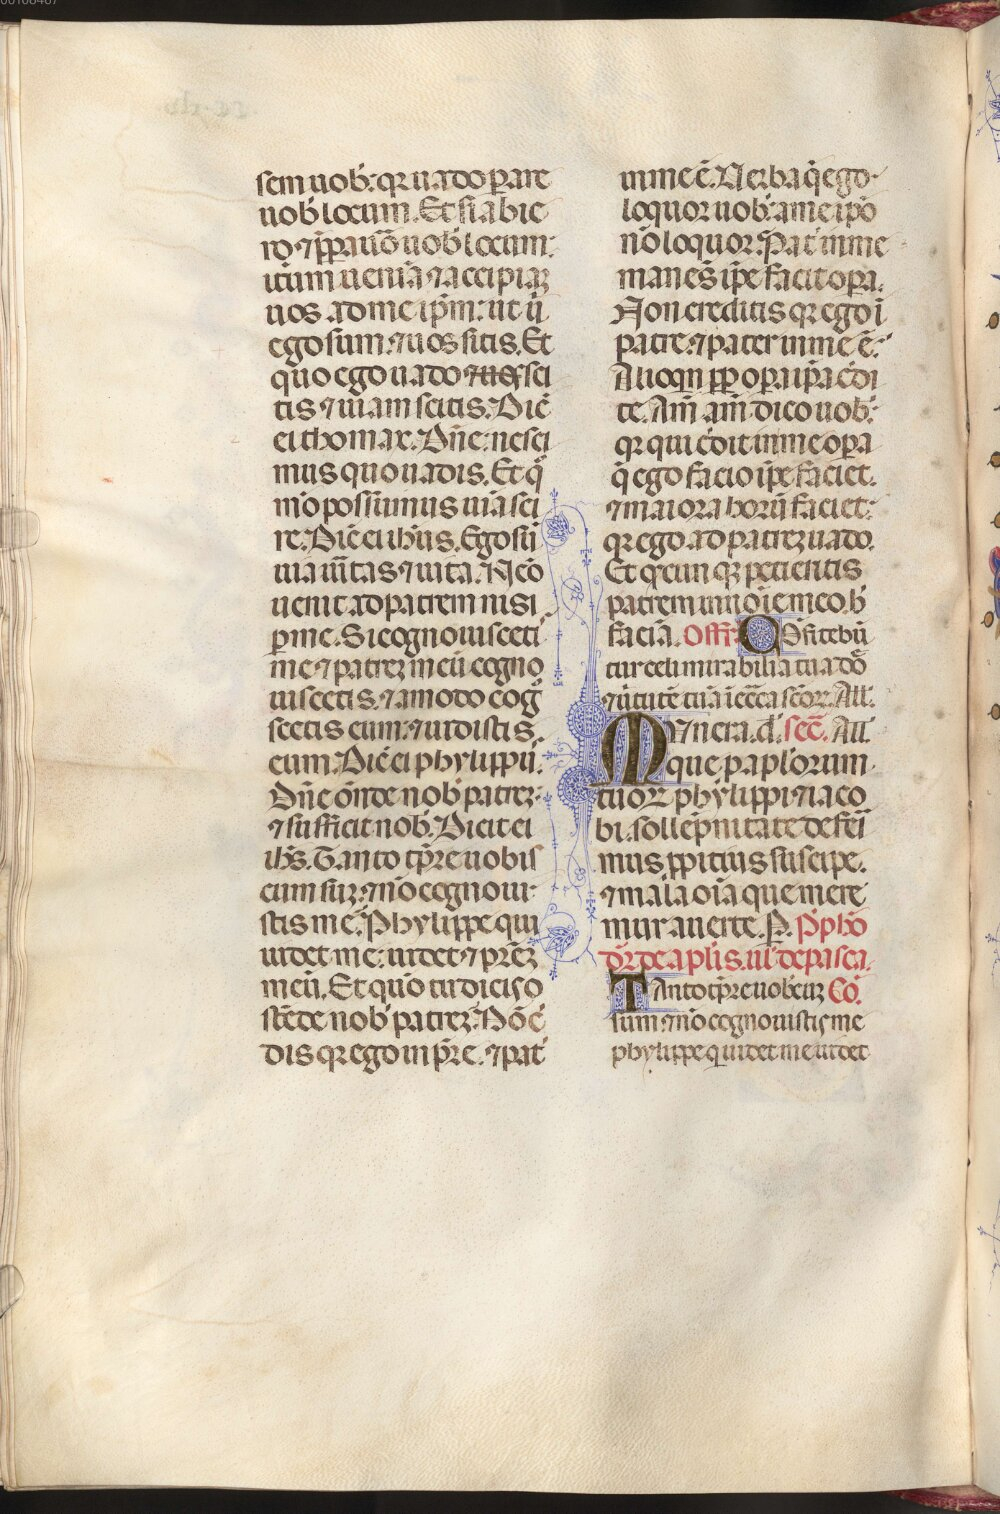 sem uob̾: qꝛ uado ꝑare
uob̾ locum. Et si abie
ro ⁊ p̄ꝑauo᷑ uob̾ locum:
itum ueniā ⁊ accipiaꝫ
uos ad me ip̄m: ut ū
ego sum: ⁊ uos sitis. Et
quo ego uado sci
tis ⁊ uiam scitis. Dic̄
ei thomax. Dn̄e: nesci
mus quo uadis. Et qͦ
mō possumus uiā sci
re. Dic̄ ei ih̄us. Ego sū
uia uīitas ⁊ uita. Neō
uenit ad patrem nisi
ꝑ me. Si cognouisceti
me ⁊ patreꝫ meū cogno
uiscetis. ⁊ amodo cog
scetis eum: ⁊ uidistis
eum. Dic̄ ei phylippū.
Dn̄e on̄de nob̾ patreꝫ:
⁊ sufficit nob̾. Dicit ei
ih̄s. Tanto tp̄re uobis
cum suꝫ: ⁊ nō cognoui
stis me. Phylippe qui
uidet me: uidet ⁊ pr̄eꝫ
meū. Et quō tu dicis: o
stēde nob̾ patreꝫ? Nō c̄
dis qꝛ ego in pr̄e. ⁊ pat̾
in me ē. Uerba q̄ ego
loquor uob̾: a me ip̄o
nō loquor. Pat̾ in me
manēs ip̄e facit oꝑa.
Non creditis qꝛ ego ī
patre: ⁊ pater in me ē?
Alioqn̄ ꝓp oꝑa ip̄a c̄di
te. Am̄ am̄ dico uob̾:
qꝛ qui c̄dit in me oꝑa
q̄ ego facio ip̄e faciet.
⁊ maiora horū faciet:
qꝛ ego ad patreꝫ uado.
Et qͨcunqꝫ petieritis
patrem in noīe meo. h̾
faciā. Offr̄ COn̄fitebū
tur celi mirabilia tua dn̄e
⁊ ūitutē tuā ī ecc̄a sc̄oꝝ. All̾.
MUnera. d̄. sec̄. All̾.
que p̄ apl̄orum
tuoꝝ phylippi ⁊ iaco
bi. sollep̄nitate defeī
mus ꝓpitius suscipe.
⁊ mala oīa que mere
mur auerte. P̄. P̄pho
dr̄ de aplīs. ul̾ de pasca.
TAnto tp̄re uob̾cuꝫ Cō.
sum ⁊ nō cognouistis me
phylippe qui uidet me uidet